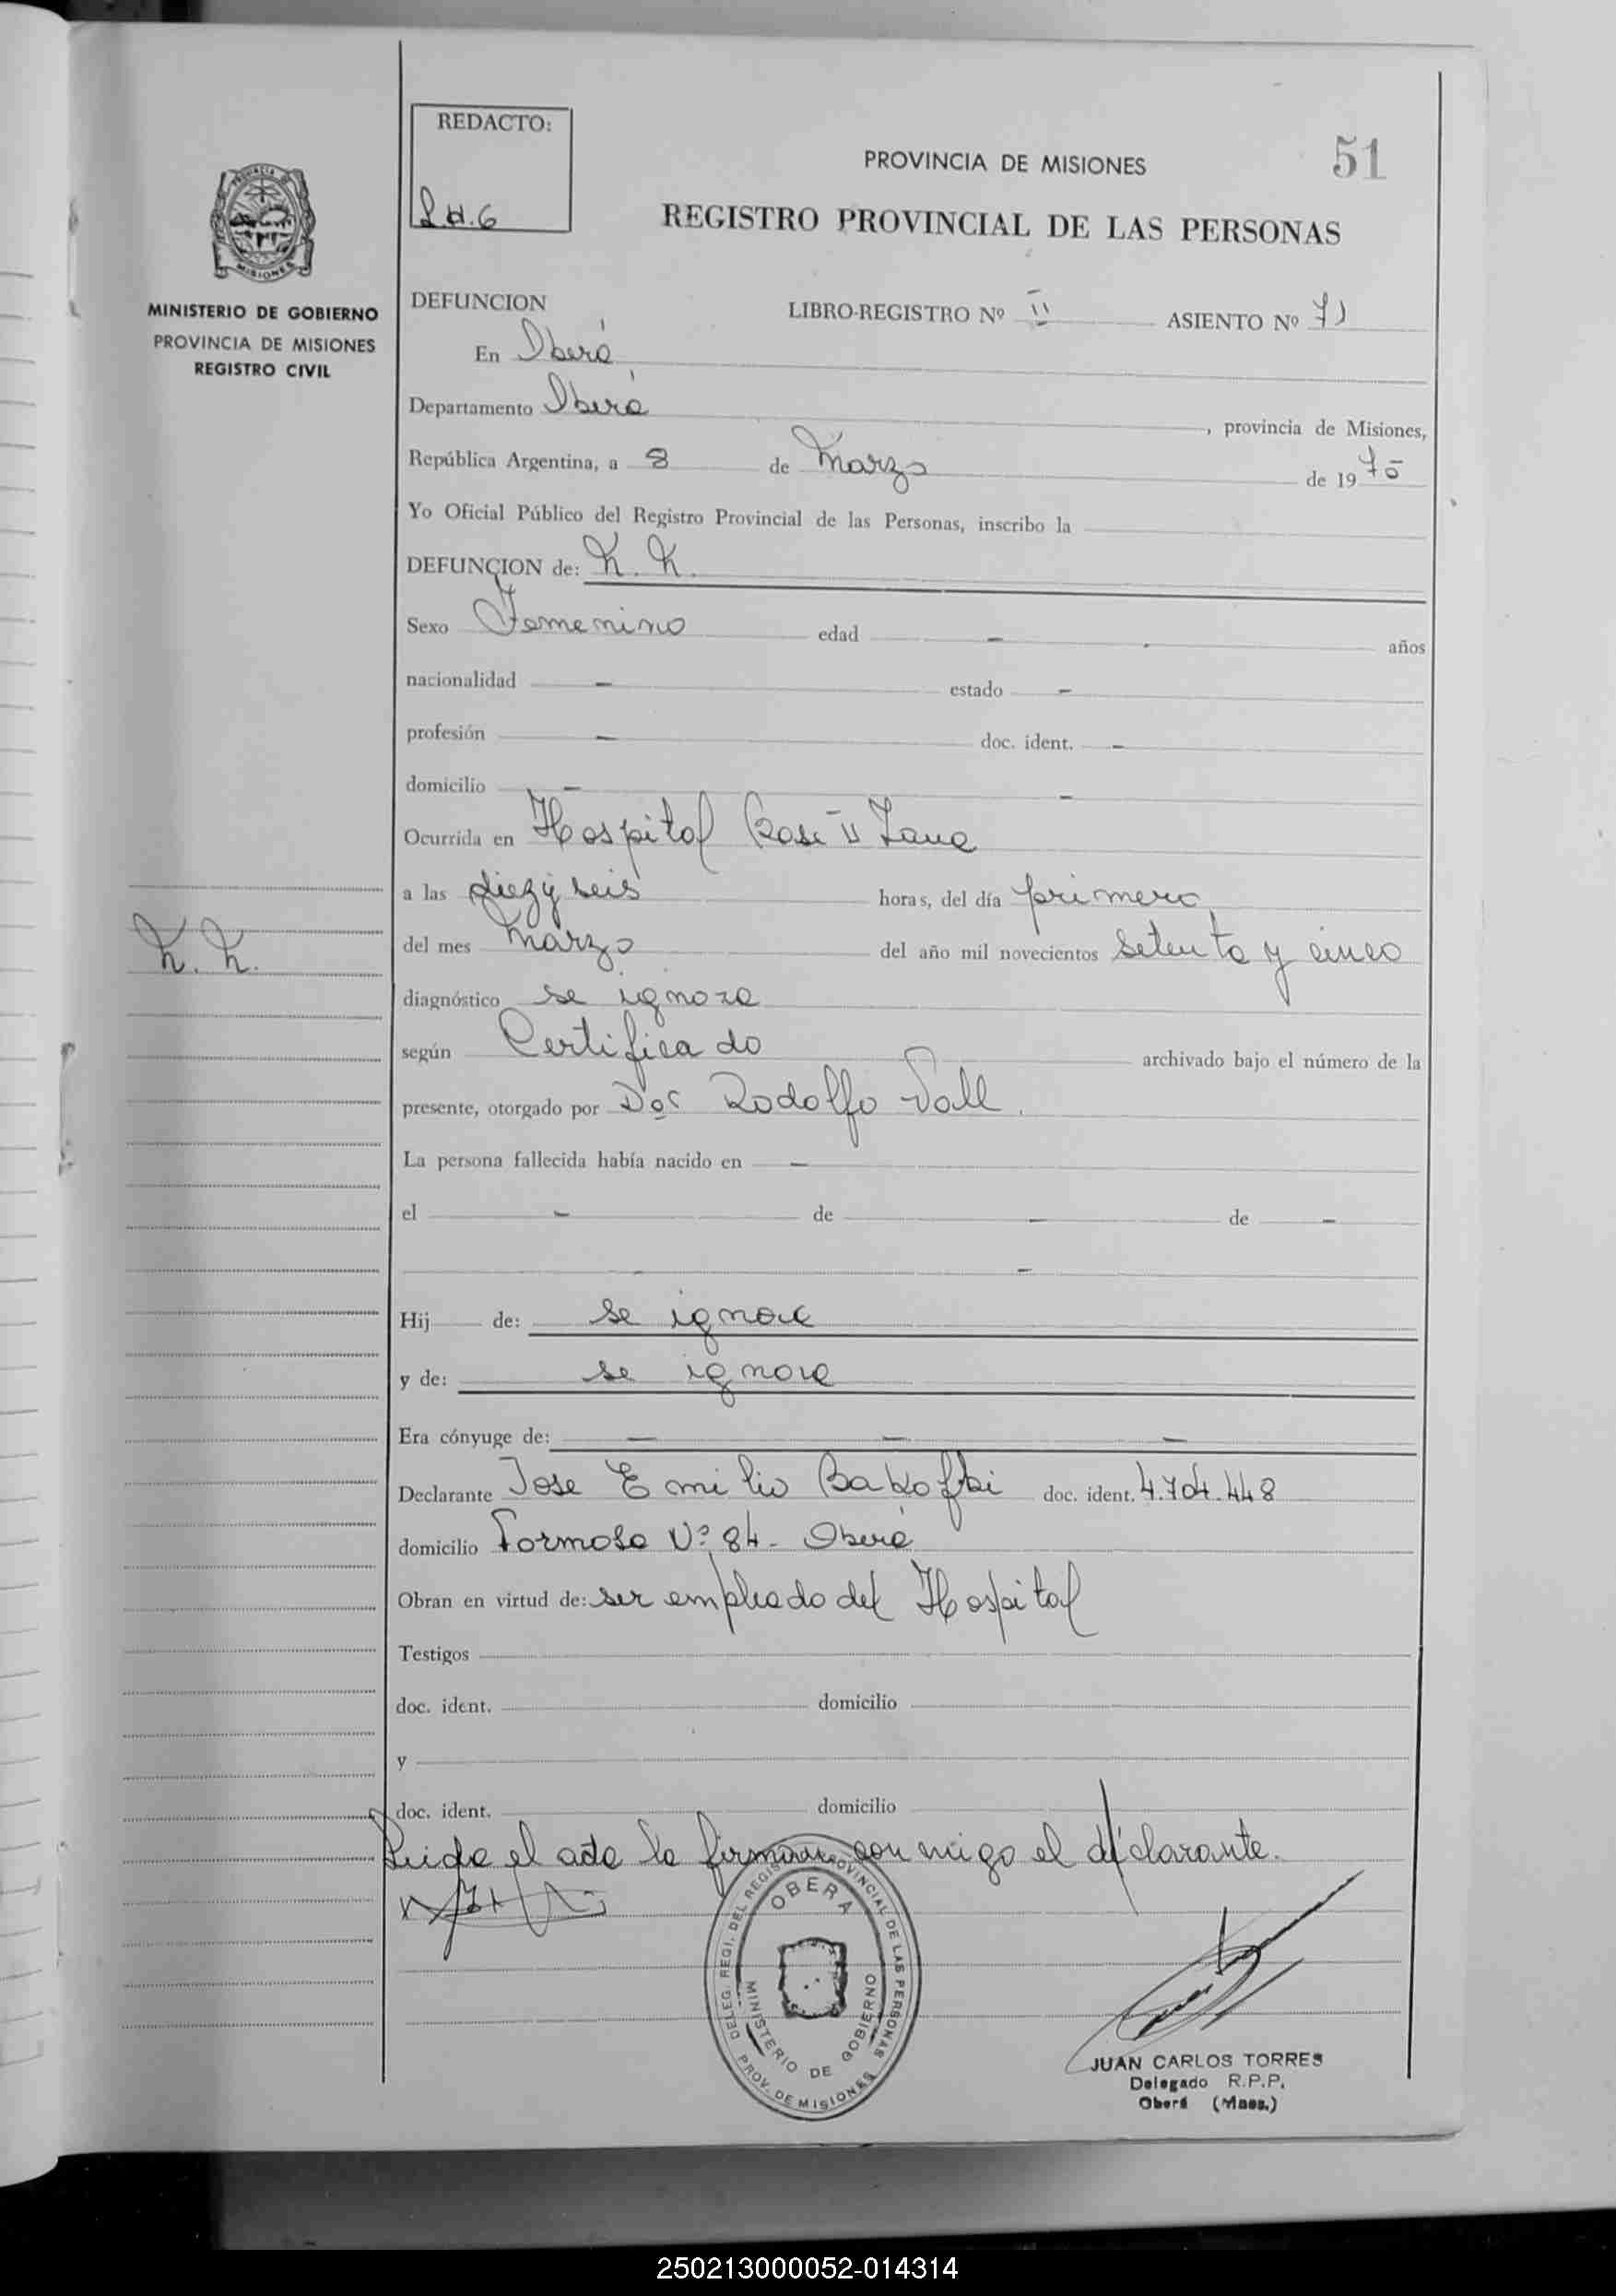 REDACTO:
PROVINCIA DE MISIONES
51
REGISTRO PROVINCIAL DE LAS PERSONAS
PROVINCIA DE
MISIONES
MINISTERIO DE GOBIERNO
PROVINCIA DE MISIONES
REGISTRO CIVIL
DEFUNCION LIBRO-REGISTRO Nº II ASIENTO Nº 71
En Oberá
Departamento Oberá, provincia de Misiones,
República Argentina, a 8 de Marzo de 1975
Yo Oficial Público del Registro Provincial de las Personas, inscribo la
DEFUNCION de: N. N.
Sexo Femenino edad - años
nacionalidad - estado -
profesión - doc. ident. -
domicilio - -
Ocurrida en Hospital
a las diez y seis horas, del día primero
N. N.
del mes Marzo del año mil novecientos setenta y cinco
diagnóstico se ignora
según Certificado archivado bajo el número de la
presente, otorgado por Doc Rodolfo Vall.
La persona fallecida había nacido en -
el - de - de -
-
Hij de: se ignora
y de: se ignora
Era cónyuge de: - - -
Declarante Jose Emilio doc. ident. 4.704.448
domicilio Formosa Nº 84 - Oberá
Obran en virtud de: ser empleado del Hospital
Testigos
doc. ident. domicilio
y
doc. ident. domicilio
Leida el acta la firman con migo el declarante.
DELEG. REGI. DEL REGIS. PROVINCIAL DE LAS PERSONAS
OBERA
MINISTERIO DE GOBIERNO
PROV. DE MISIONES
JUAN CARLOS TORRES
Delegado R.P.P.
Oberá (Mnes.)
250213000052-014314